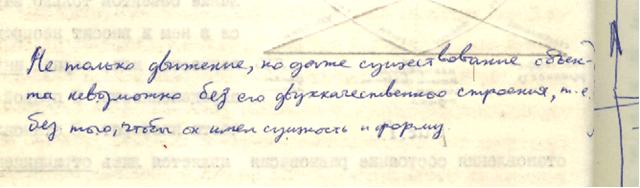 Не только движение, но даже существование объек-
та невозможно без его двухкачественного строения, т.е.
без того, чтобы он имел сущность и форму.